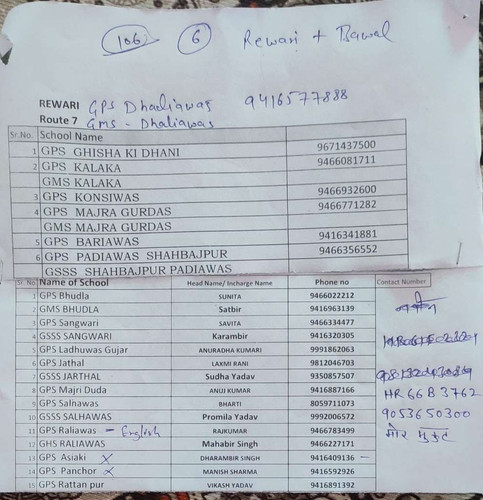 106 6 Rewari + Bawal
REWARI GPS Dhaliawas 9416577888
Route 7 GMS - Dhaliawas
Sr.No. School Name
1 GPS GHISHA KI DHANI 9671437500
2 GPS KALAKA 9466081711
GMS KALAKA
3 GPS KONSIWAS 9466932600
4 GPS MAJRA GURDAS 9466771282
GMS MAJRA GURDAS
5 GPS BARIAWAS 9416341881
6 GPS PADIAWAS SHAHBAJPUR 9466356552
GSSS SHAHBAJPUR PADIAWAS
Sr. No. Name of School Head Name/ Incharge Name Phone no Contact Number
1 GPS Bhudla SUNITA 9466022212
2 GMS BHUDLA Satbir 9416963139
3 GPS Sangwari SAVITA 9466334477
4 GSSS SANGWARI Karambir 9416320305
5 GPS Ladhuwas Gujar ANURADHA KUMARI 9991862063
6 GPS Jathal LAXMI RANI 9812046703
7 GSSS JARTHAL Sudha Yadav 9350857507
8 GPS Majri Duda ANUJ KUMAR 9416887166 HR 66 B 3762
9 GPS Salhawas BHARTI 8059711073 9053650300
10 GSSS SALHAWAS Promila Yadav 9992006572
11 GPS Raliawas - English RAJKUMAR 9466783499
12 GHS RALIAWAS Mahabir Singh 9466227171
13 GPS Asiaki X DHARAMBIR SINGH 9416409136 -
14 GPS Panchor X MANISH SHARMA 9416592926
15 GPS Rattan pur VIKASH YADAV 9416891392